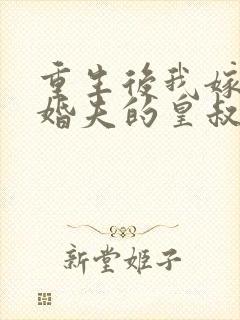 重生後我嫁
婚夫的皇叔
新堂姬子